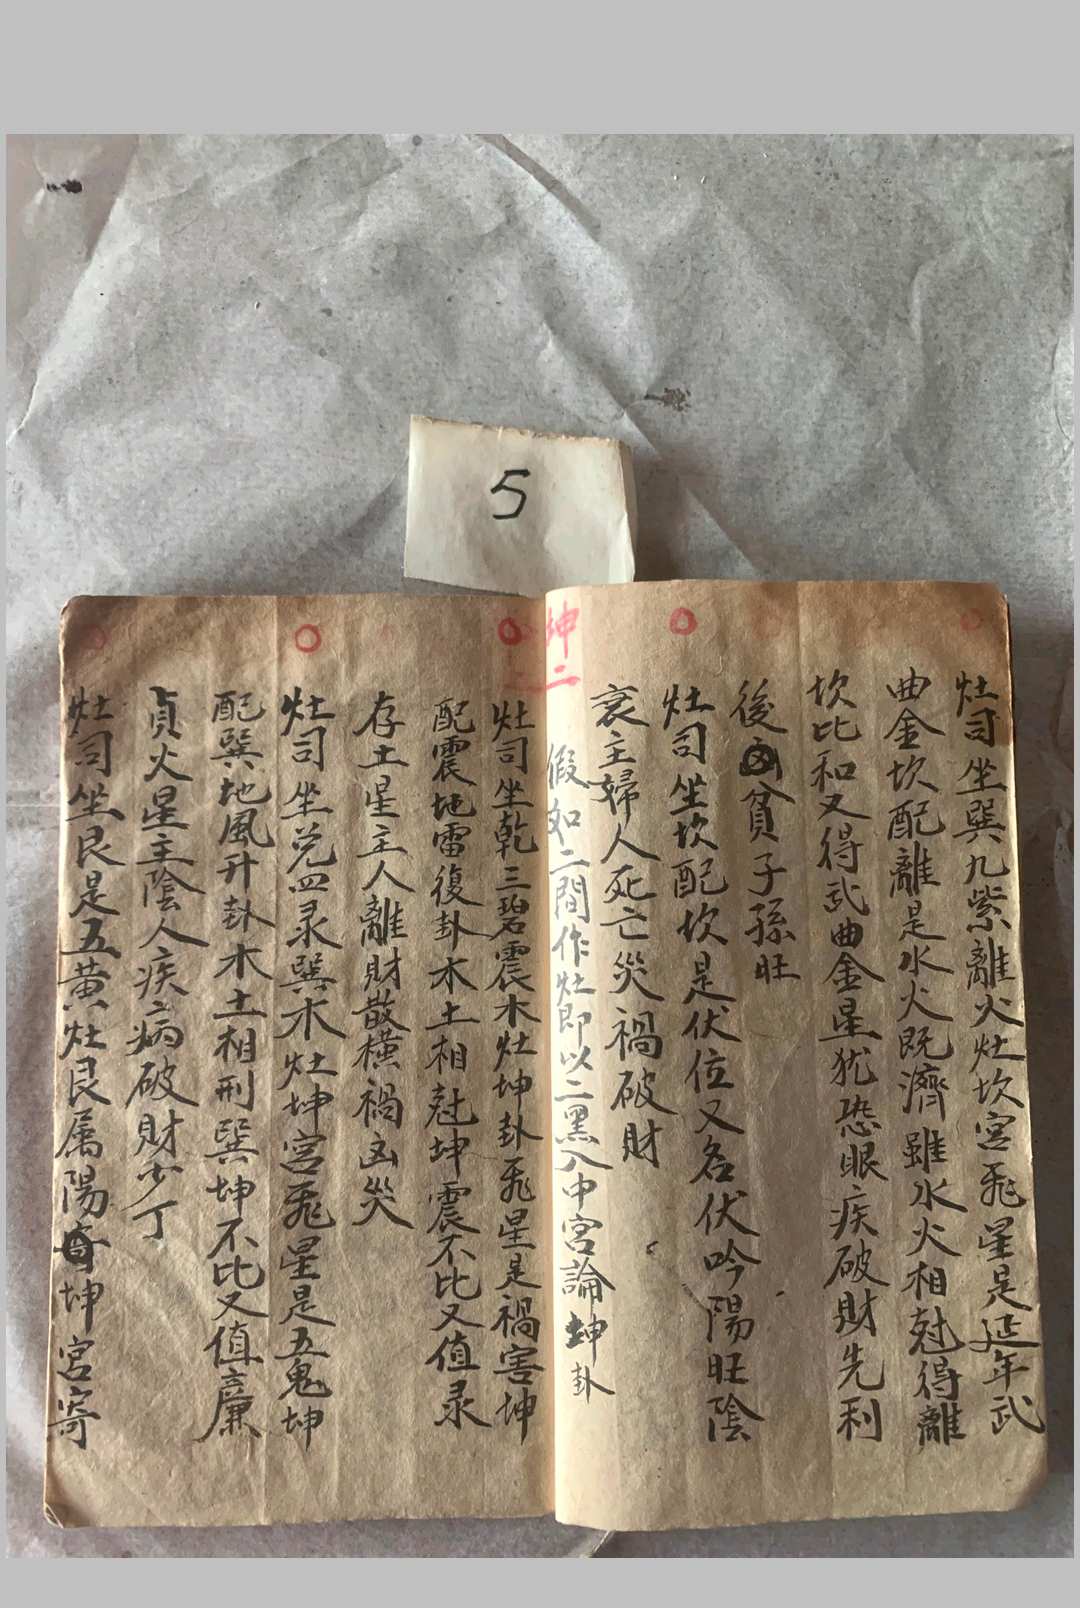 5
灶司坐巽九紫離火灶坎宮飛星是延年武
曲金坎配離是水火既濟雖水火相尅得離
坎比和又得武曲金星犹恐眼疾破財先利
後凶貧子孫旺
灶司坐坎配坎是伏位又名伏吟陽旺陰
衰主婦人死亡災禍破財
坤二
假如二間作灶即以二黑入中宮論坤卦
灶司坐乾三碧震木灶坤卦飛星是禍害坤
配震地雷復卦木土相尅坤震不比又值录
存土星主人離財散橫禍凶災
灶司坐兌四录巽木灶坤宮飛星是五鬼坤
配巽地風升卦木土相刑巽坤不比又值廉
貞火星主陰人疾病破財少丁
灶司坐艮是五黃灶艮属陽寄坤宮寄